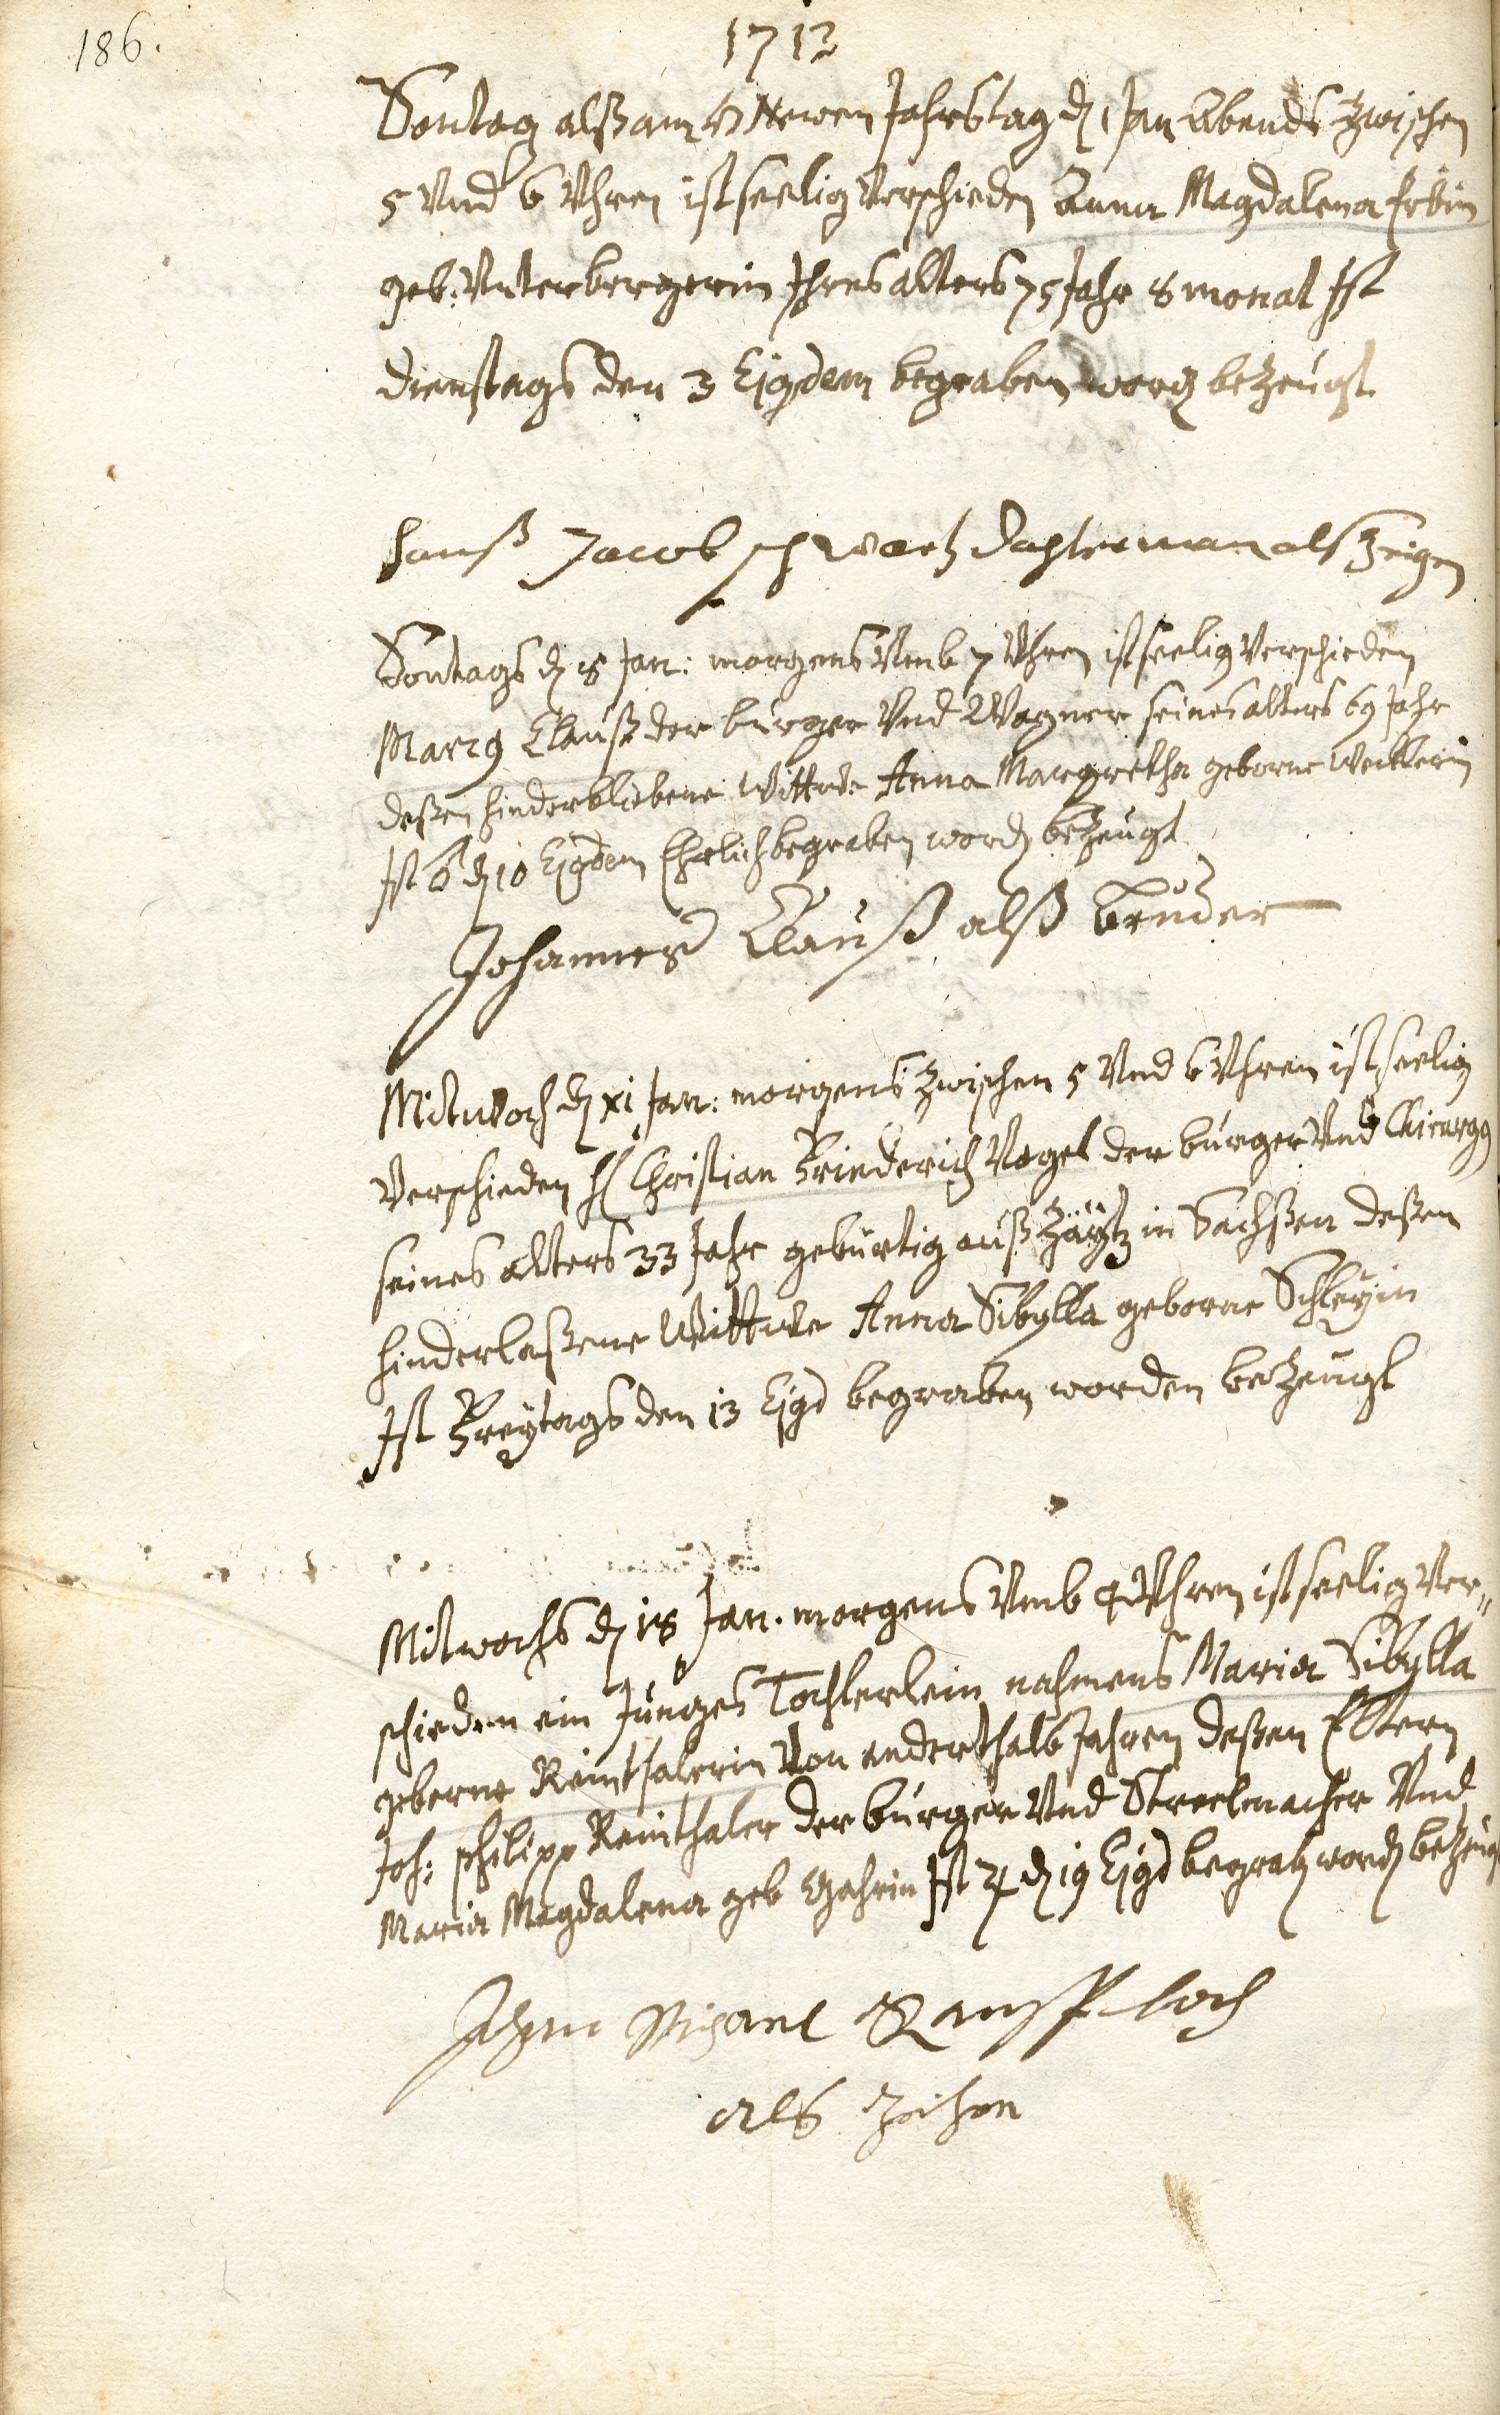 186.
1713
Sontag alß am Newen Jahrstag dȷ 1 Jan Abends zwischen
5 Vnd 6 Vhren ist seelig Verschieden Anna Magdalena Erbin
geb: Vnterbergerin Ihres alters 75 Jahr 8 monat Ist
dienstags den 3 Ejgdem begraben word bezeugt
Hanß Jacob schwartz dochterman als Zeigen
Sontags d 8 Jan: morgens Vmb 7 Vhren ist seelig Verschieden
Marx Clauß der burger Vnd Wagner seines alters 69 Jahr
deßen hinderbliebene Wittwe Anna Margretha geborne
Ist ♂ d 10 Ejgdem Ehrlich begraben word bezeugt
Johannes Clauß alß bruder
Mitwoch d XI Jan: morgens zwischen 5 Vnd 6 Vhren ist seelig
Verschieden H Christian Friederich Vogel der burger Vnd Chirurg9
seines alters 33 Jahr gebürtig auß in Sachßen deßen
hinderlaßene Wittwe Anna Sibylla geborne Schleyin
Ist Freytags den 13 Ejgd begraben worden bezeugt
Mitwochs d 18 Jan. morgens Vmb 4 Vhren ist seelig Ver„
schieden ein Junges Tochterlein nahmens Maria Sibylla
geborne Reinthalerin Von anderthalb Jahren deßen Eltern
Joh: philipp Reinthaler der burger Vnd Streelmacher Vnd
Maria Magdalena geb Ist ♃ d 19 Ejgd begrab word bezeugt
Michael
als